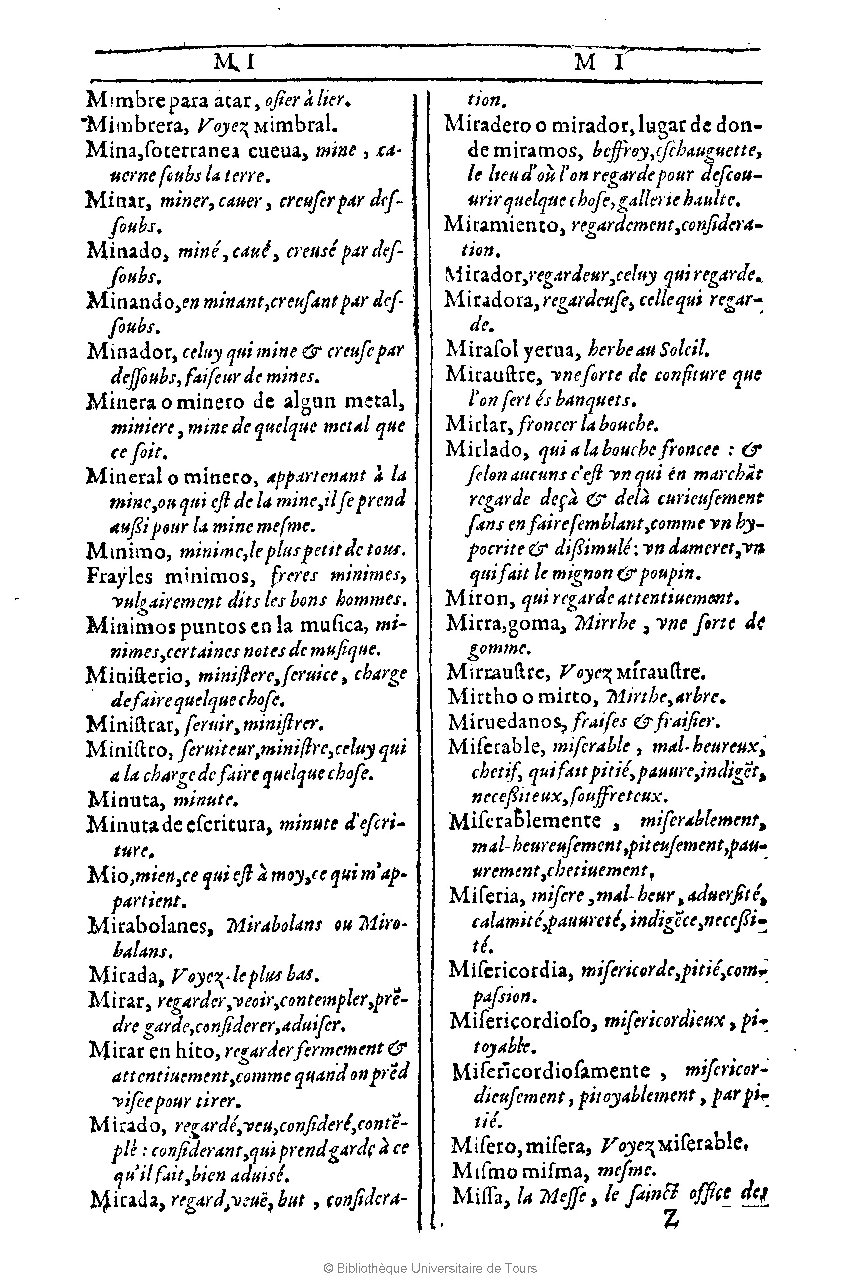 M I
Mimbre para atar, oſier à lier.
Mimbrera, Voyez Mimbral.
Mina, ſoterranea cueua, mine, ca-
uerne ſoubs la terre.
Minar, miner, cauer, creuſer par deſ-
ſoubs.
Minado, miné, caué, creusé par deſ-
ſoubs.
Minando, en minant, creuſant par deſ-
ſoubs.
Minador, celuy qui mine & creuſe par
deſſoubs, faiſeur de mines.
Minera o minero de algun metal,
miniere, mine de quelque metal que
ce ſoit.
Mineral o minero, appartenant à la
mine, ou qui eſt de la mine, il ſe prend
außi pour la mine meſme.
Minimo, minime, le plus petit de tous.
Frayles minimos, freres minimes,
vulgairement dits les bons hommes.
Minimos puntos en la muſica, mi-
nimes, certaines notes de muſique.
Miniſterio, miniſtere, ſeruice, charge
de faire quelque choſe.
Miniſtrar, ſeruir, miniſtrer.
Miniſtro, ſeruiteur, miniſtre, celuy qui
a la charge de faire quelque choſe.
Minuta, minute.
Minuta de eſcritura, minute d'eſcri-
ture.
Mio, mien, ce qui eſt à moy, ce qui m'ap-
partient.
Mirabolanes, Mirabolans ou Miro-
balans.
Mirada, Voyez le plus bas.
Mirar, regarder, veoir, contempler, prē-
dre garde, conſiderer, aduiſer.
Mirar en hito, regarder fermement &
attentiuement, comme quand on prēd
viſee pour tirer.
Mirado, regardé, veu, conſideré, contē-
plé : conſiderant, qui prend garde à ce
qu'il fait, bien aduisé.
Mirada, regard, veuë, but, conſidera-
M I
tion.
Miradero o mirador, lugar de don-
de miramos, beffroy, eſchauguette,
le lieu d'où l'on regarde pour deſcou-
urir quelque choſe, gallerie haulte.
Miramiento, regardement, conſidera-
tion.
Mirador, regardeur, celuy qui regarde.
Miradora, regardeuſe, celle qui regar-
de.
Miraſol yerua, herbe au Soleil.
Mirauſtre, vne ſorte de confiture que
l'on ſert és banquets.
Mirlar, froncer la bouche.
Mirlado, qui a la bouche froncee : &
ſelon aucuns c'eſt vn qui en marchāt
regarde deçà & delà curieuſement
ſans en faire ſemblant, comme vn hy-
pocrite & dißimulé : vn dameret, vn
qui fait le mignon & poupin.
Miron, qui regarde attentiuement.
Mirra, goma, Mirrhe, vne ſorte de
gomme.
Mirrauſtre, Voyez Mirauſtre.
Mirtho o mirto, Mirthe, arbre.
Miruedanos, fraiſes & fraiſier.
Miſerable, miſerable, mal-heureux,
chetif, qui fait pitié, pauure, indigēt,
neceßiteux, ſouffreteux.
Miſerablemente, miſerablement,
mal-heureuſement, piteuſement, pau-
urement, chetiuement,
Miſeria, miſere, mal-heur, aduerſité,
calamité, pauureté, indigēce, neceßi-
té.
Miſericordia, miſericorde, pitié, com-
paſsion.
Miſericordioſo, miſericordieux, pi-
toyable.
Miſericordioſamente, miſericor-
dieuſement, pitoyablement, par pi-
tié.
Miſero, miſera, Voyez Miſerable.
Miſmo miſma, meſme.
Miſſa, la Meſſe, le ſainct office des
Z
© Bibliothèque Universitaire de Tours